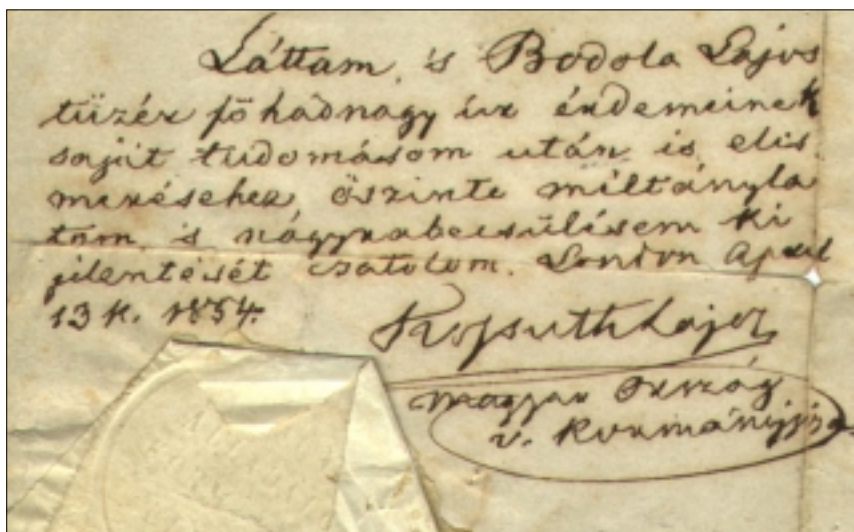 Láttam, 's Bodola Lajos
tüzér főhadnagy úr érdemeinek
saját tudomásom után is elis
meréséhez őszinte méltányla
tom, 's nagyrabecsülésem ki
jelentését csatolom. London April
13k. 1854.
Kossuth Lajos
Magyar Ország
v. Kormányzója